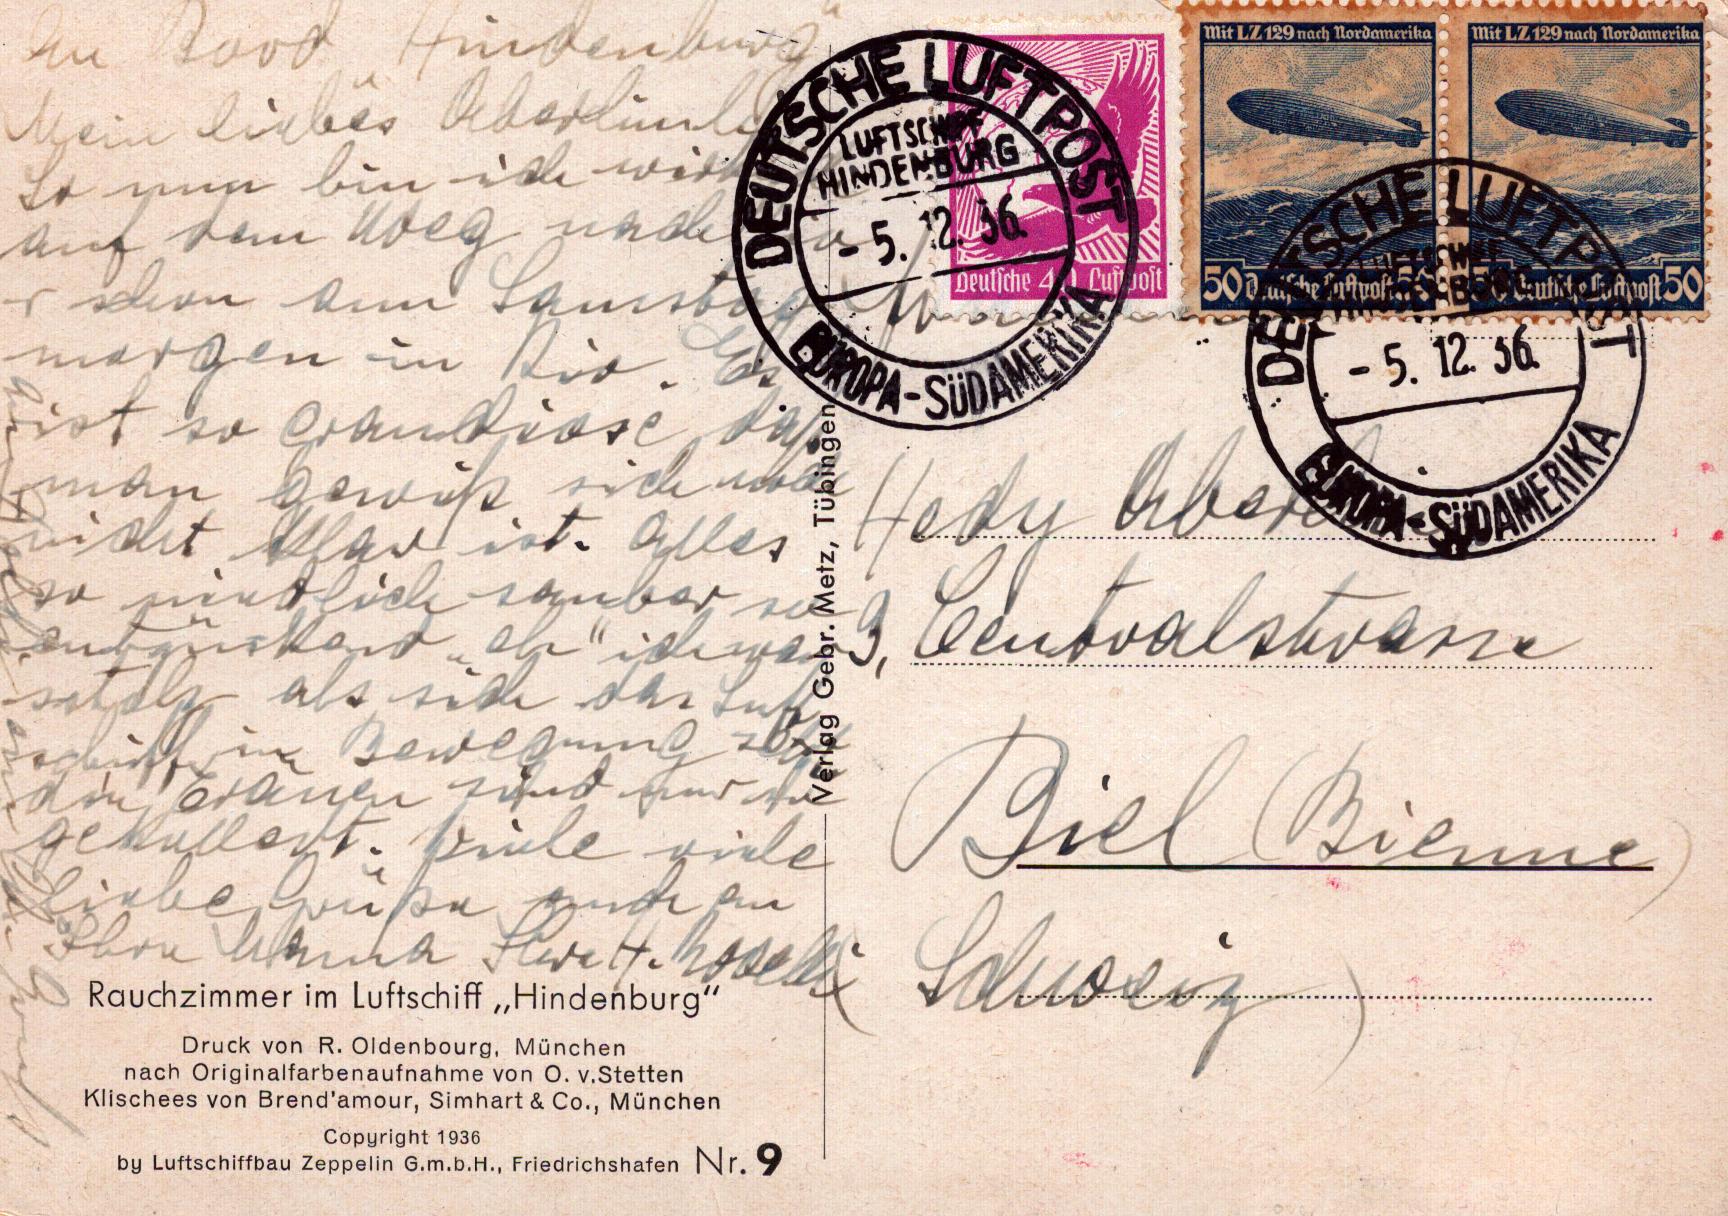 An Bord „Hindenburg"
Mein liebes
So nun bin ich
auf dem Weg nach
schon am Samstag
morgen in Rio. Es
ist so grandiose, daß
man gewiß sich
nicht klar ist. Alles
so niedlich sauber so
entzückend
als sich das Luft
schiff in Bewegung
die Tränen sind nur so
gekullert. Viele viele
liebe Grüße auch an
Ihre Mama
Rauchzimmer im Luftschiff „Hindenburg"
Druck von R. Oldenbourg, München
nach Originalfarbenaufnahme von O. v. Stetten
Klischees von Brend'amour, Simhart & Co., München
Copyright 1936
by Luftschiffbau Zeppelin G.m.b.H., Friedrichshafen Nr. 9
Verlag Gebr. Metz, Tübingen
DEUTSCHE LUFTPOST
LUFTSCHIFF
HINDENBURG
- 5. 12. 36.
EUROPA - SÜDAMERIKA
Deutsche 40 Luftpost
Mit LZ 129 nach Nordamerika
50 Deutsche Luftpost 50
Mit LZ 129 nach Nordamerika
50 Deutsche Luftpost 50
DEUTSCHE LUFTPOST
LUFTSCHIFF
HINDENBURG
- 5. 12. 36.
EUROPA - SÜDAMERIKA
Hedy
9, Centralstrasse
Biel (Bienne)
(Schweiz)